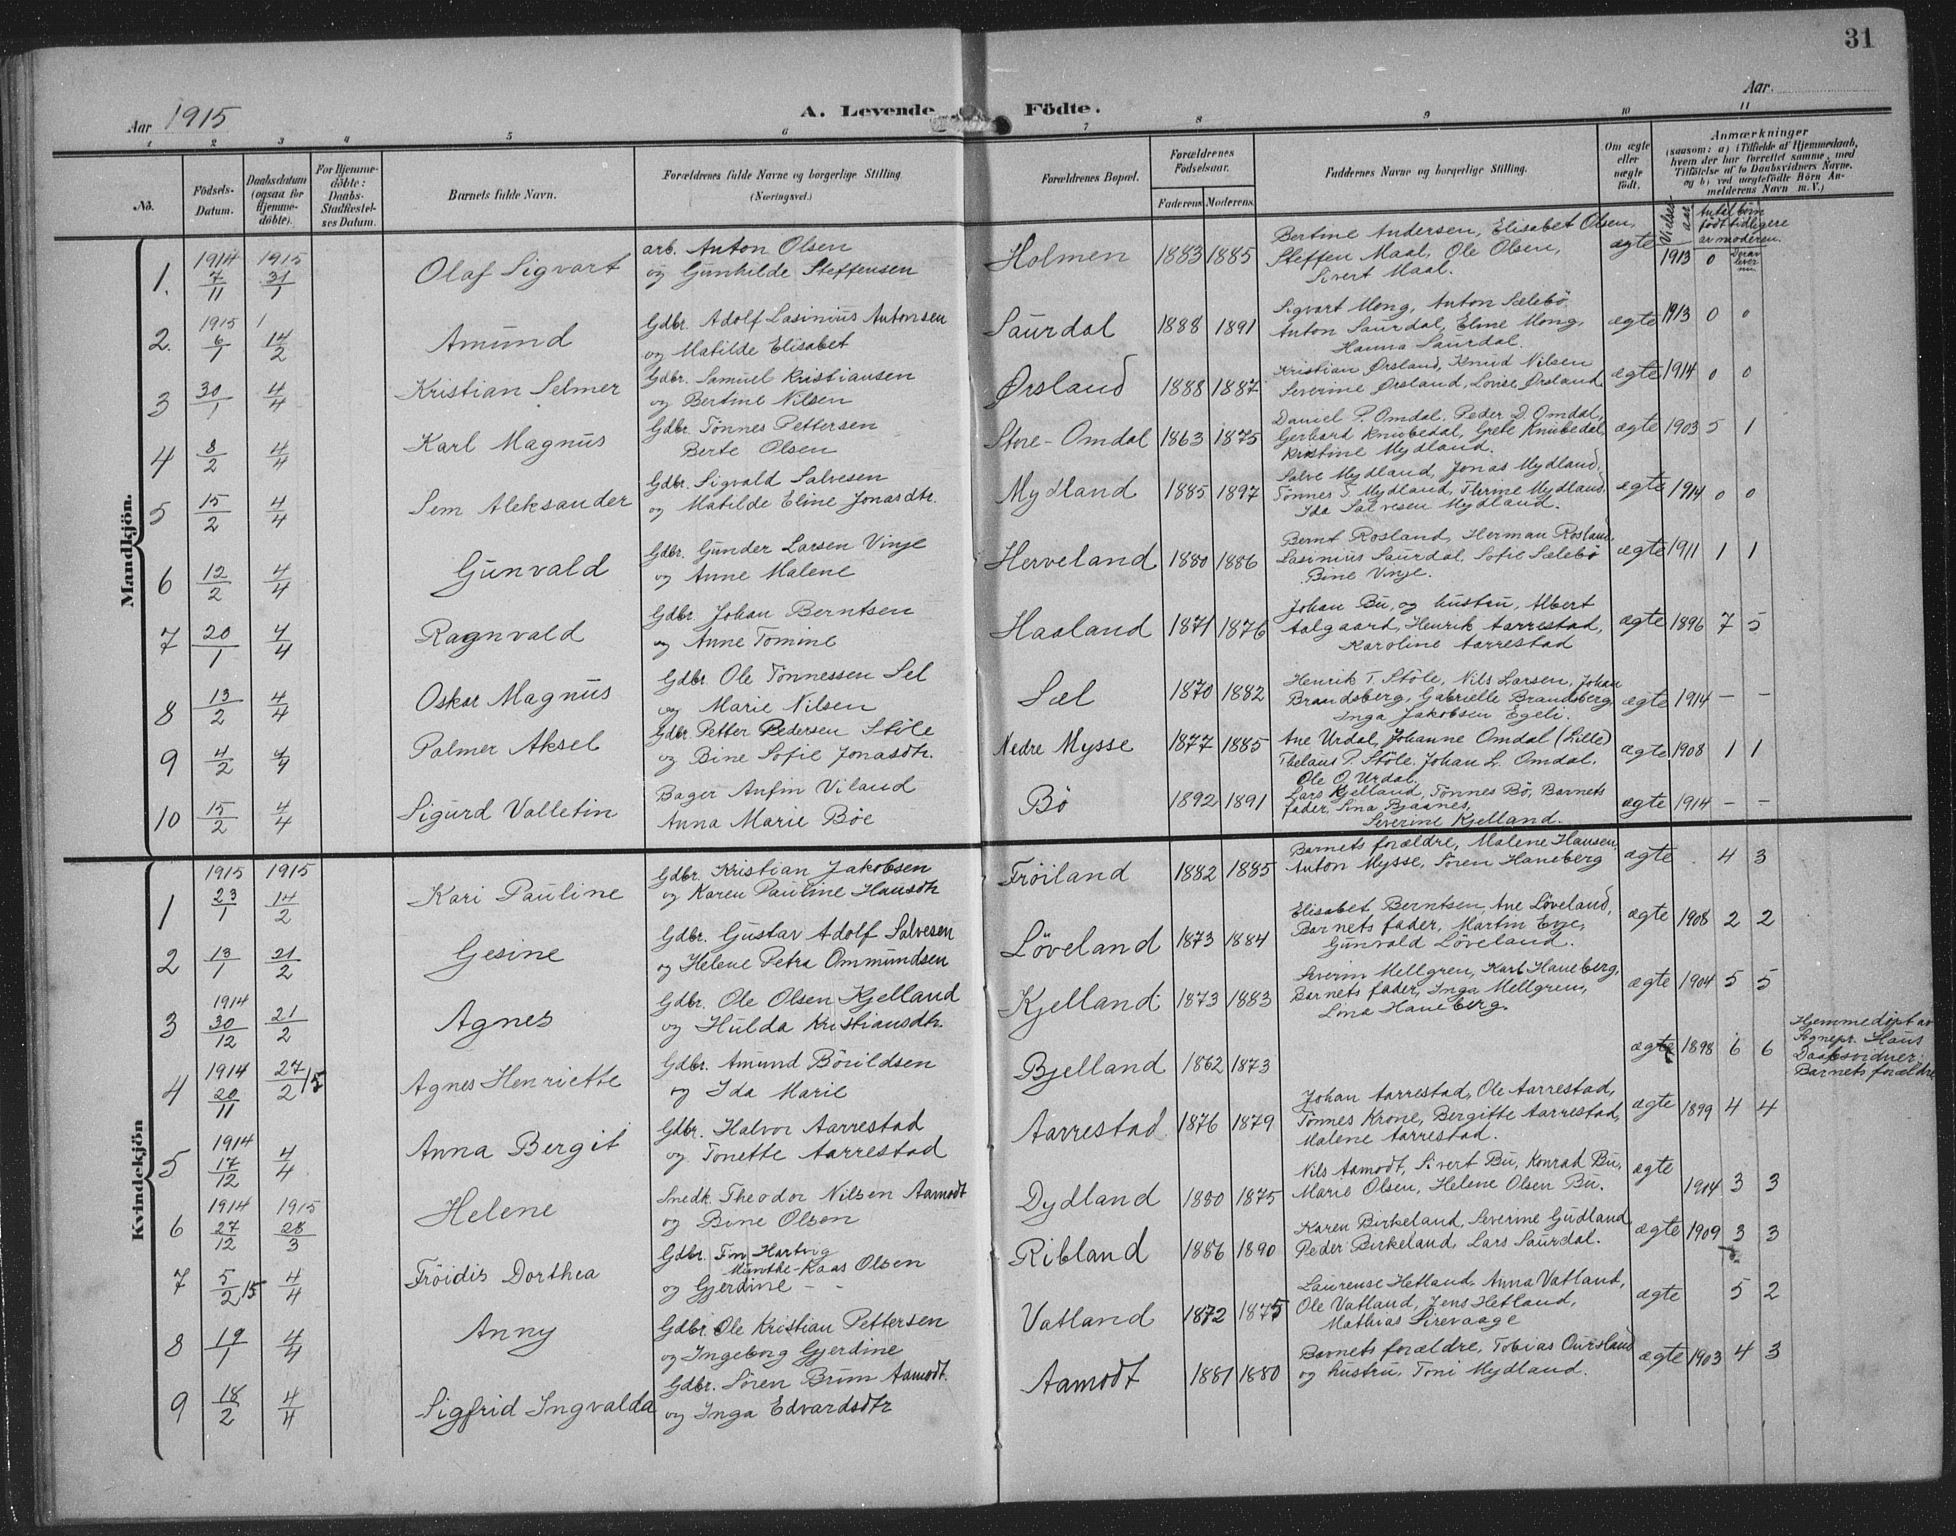 31
Aar 1915
A. Levende Födte.
Aar
1 2 3 4 5 6 7 8 9 10 11
No.
Födsels-Datum.
Daabsdatum (ogsaa for Hjemme-döbte).
For Hjemme-döbte: Daabs-Stadfæstel-ses Datum.
Barnets fulde Navn.
Forældrenes fulde Navne og borgerlige Stilling (Næringsvei.)
Forældrenes Bopæl.
Forældrenes Födselsaar.
Faderens Moderens
Faddernes Navne og borgerlige Stilling.
Om ægte eller uægte födt.
Anmærkninger
(saasom: a) i Tilfælde af Hjemmedaab, hvem der har forrettet samme, med Tilföielse af to Daabsvidners Navne. og b) ved uægtefödte Börn An-melderens Navn m. V.)
Vielses aar
Antal børn født tidligere av moderen.
Derav lever nu.
Mandkjön.
1. 1914 7/11 1915 31/1 Olaf Sigvart arb. Anton Olsen Holmen 1883 1885 Bertine Andersen, Elisabet Olsen, ægte 1913 0
og Gunhilde Steffensen Steffen Maal, Ole Olsen,
Sivert Maal.
2. 1915 6/1 14/2 Amund Gdbr. Adolf Lasinius Antonsen Saurdal 1888 1891 Sigvart Mong, Anton Sælebö ægte 1913 0 0
og Matilde Elisabet Anton Saurdal, Eline Mong,
Hanna Saurdal.
3 30/1 4/4 Kristian Selmer Gdbr. Samuel Kristiansen Ørsland 1888 1887 Kristian Ørsland, Knud Nilsen ægte 1914 0 0
og Bertine Nilsen Severine Ørsland, Lovise Ørsland
4 8/2 4/4 Karl Magnus Gdbr. Tönnes Pettersen Store-Omdal 1863 1875 Daniel P. Omdal, Peder D. Omdal, ægte 1903 5 1
Berte Olsen Gerhard Knubedal, Grete Knubedal,
Kristine Mydland.
5 15/2 4/4 Sem Aleksander Gdbr. Sigvald Salvesen Mydland 1885 1897 Salve Mydland, Jonas Mydland, ægte 1914 0 0
og Matilde Eline Jonasdtr. Tönnes T. Mydland, Therine Mydland
Ida Salvesen Mydland.
6 12/2 4/4 Gunvald Gdbr. Gunder Larsen Vinje Herveland 1880 1886 Bernt Rosland, Herman Rosland ægte 1911 1 1
og Anne Malene Lasinius Saurdal, Sofie Sælebö
Bine Vinje.
7 20/1 4/4 Ragnvald Gdbr. Johan Berntsen Haaland 1871 1876 Johan Bu, og hustru, Albert ægte 1896 7 5
og Anne Tomine Aalgaard, Henrik Aarrestad,
Karoline Aarrestad
8 13/2 4/4 Oskar Magnus Gdbr. Ole Tönnessen Sel Sæl 1870 1882 Henrik T. Stöle, Nils Larsen, Johan ægte 1914 - -
og Marie Nilsen Brandsberg, Gabrielle Brandsberg,
Inga Jakobsen Egeli.
9 4/2 4/4 Palmer Aksel Gdbr. Petter Pedersen Stöle Nedre Mysse 1877 1885 Ane Urdal, Johanne Omdal (Lille) ægte 1908 1 1
og Bine Sofie Jonasdtr. Thelaus P. Stöle, Johan L. Omdal,
Ole O. Urdal.
10 15/2 4/4 Sigurd Valletin Bager Anfin Viland Bö 1892 1891 Lars Kjelland, Tönnes Bö, Barnets ægte 1914 - -
Anna Marie Böe fader, Sina Bjaanes,
Severine Kjelland.
Kvindekjön
1 1915 23/1 1915 14/2 Kari Pauline Gdbr. Kristian Jakobsen Fröiland 1882 1885 Barnets forældre, Malene Hansen, ægte 4 3
og Karen Pauline Hansdtr Anton Mysse, Sören Haneberg
2 13/1 21/2 Gesine Gdbr. Gustav Adolf Salvesen Löveland 1873 1884 Elisabet Berntsen, Ane Löveland, ægte 1908 2 2
og Helene Petra Ommundsen Barnets fader, Martin Eye,
Gunvald Löveland.
3 1914 30/12 21/2 Agnes Gdbr. Ole Olsen Kjelland Kjelland 1873 1883 Severin Mellgren, Karl Haneberg, ægte 1904 5 5
og Hulda Kristiansdtr. Barnets fader, Inga Mellgren,
Lina Haneberg.
4 1914 20/11 27/2 15 Agnes Henriette Gdbr. Amund Börildsen Bjelland 1862 1873 ægte 1898 6 6 Hjemmedøpt av Sognepr. Haus Daabsvidner: Barnets forældre
og Ida Marie
5 1914 17/12 4/4 Anna Bergit Gdbr. Halvor Aarrestad Aarrestad 1876 1879 Johan Aarrestad, Ole Aarrestad, ægte 1899 4 4
og Tonette Aarrestad Tönnes Krone, Bergitte Aarrestad,
Malene Aarrestad.
6 1914 27/12 1915 28/3 Helene Snedk. Theodor Nilsen Aamodt Dydland 1880 1875 Nils Aamodt, Sivert Bu, Konrad Bu, ægte 1904 3 3
og Bine Olsen Marie Olsen, Helene Olsen Bu.
7 5/2 15 4/4 Fröidis Dorthea Gdbr. Fin Hartvig Munthe-Kaas Olsen Ribland 1886 1890 Karen Birkeland, Severine Gudland ægte 1909 3 3
og Gjerdine - - Peder Birkeland, Lars Saurdal.
8 19/1 4/4 Anny Gdbr. Ole Kristian Pettersen Vatland 1872 1875 Laurense Hetland, Anna Vatland, ægte 5 2
og Ingeborg Gjerdine Ole Vatland, Jens Hetland,
Mathias Sirevaage
9 18/2 4/4 Sigfrid Ingvalda Gdbr. Sören Brum Aamodt. Aamodt 1881 1880 Barnets forældre, Tobias ægte 1903 4 3
og Inga Edvardsdtr og hustru, Toni Mydland.